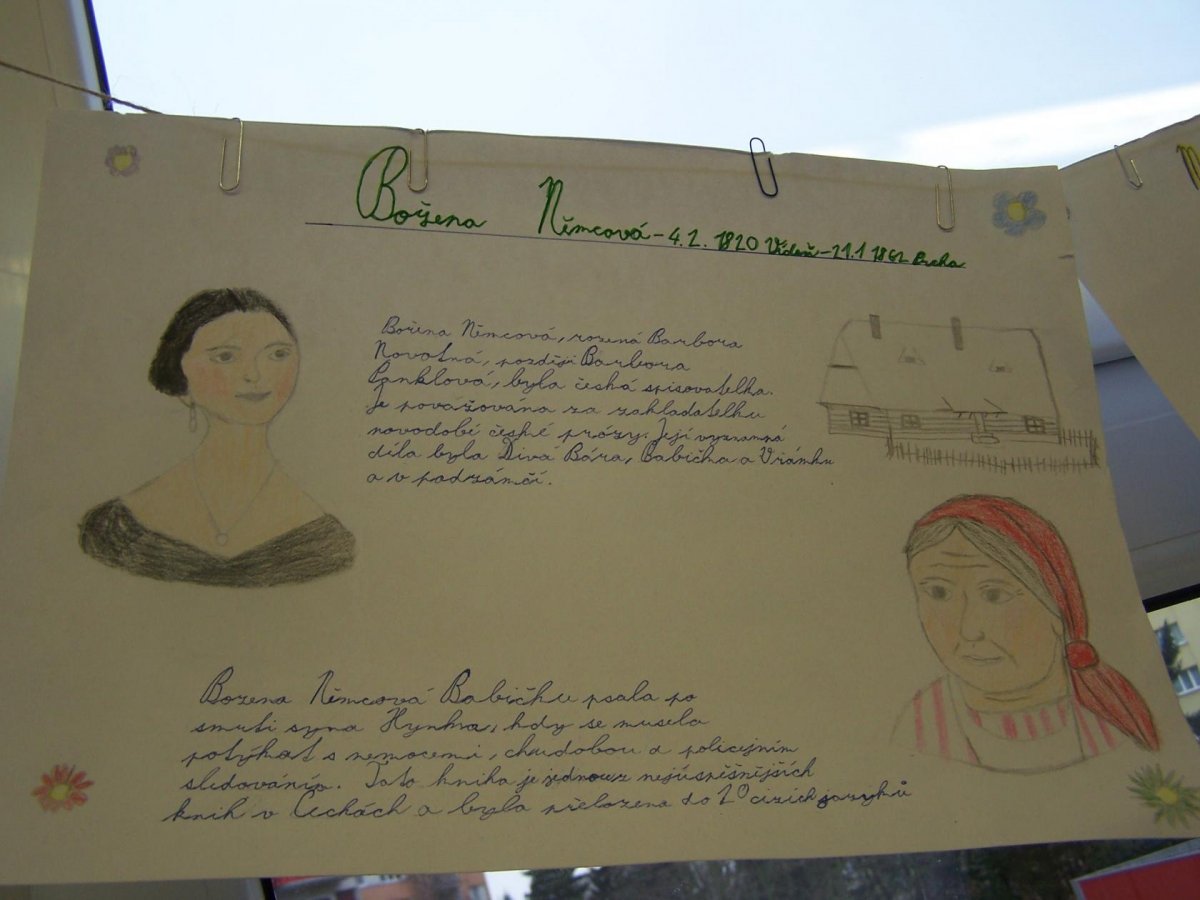 Božena Němcová - 4.2. 1820 Vídeň - 21.1 1862 Praha
Božena Němcová, rozená Barbora
Novotná, později Barbora
Panklová, byla česká spisovatelka.
Je považována za zakladatelku
novodobé české prózy. Její významná
díla byla Divá Bára, Babička a V zámku
a v podzámčí.
Bozena Němcová Babičku psala po
smrti syna Hynka, kdy se musela
potýkat s nemocemi, chudobou a policejním
sledováním. Tato kniha je jednou z nejúspěšnějších
knih v Čechách a byla přeložena do 20 cizích jazyků